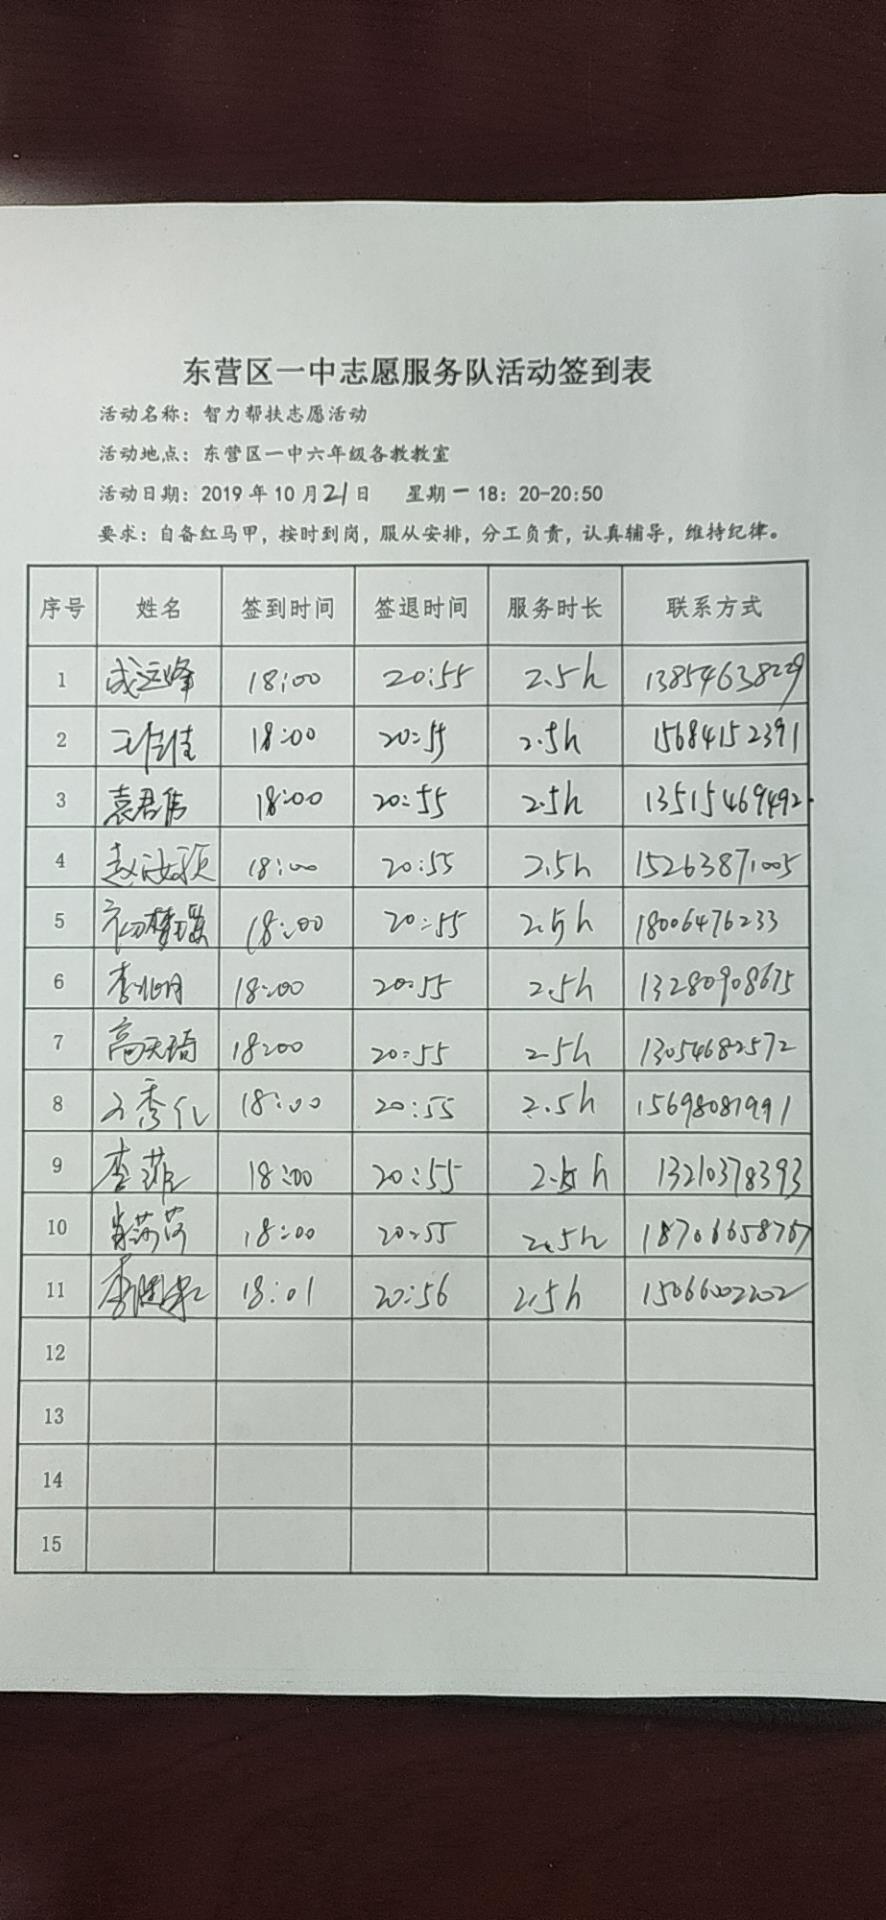 东营区一中志愿服务队活动签到表
活动名称：智力帮扶志愿活动
活动地点：东营区一中六年级各教教室
活动日期：2019年10月21日 星期一 18：20-20:50
要求：自备红马甲，按时到岗，服从安排，分工负责，认真辅导，维持纪律。
序号 姓名 签到时间 签退时间 服务时长 联系方式
1 成运峰 18:00 20:55 2.5h 13854638229
2 王佳佳 18:00 20:55 2.5h 15684152391
3 袁君伟 18:00 20:55 2.5h 13515469492
4 赵汝颖 18:00 20:55 2.5h 15263871005
5 初梦璇 18:00 20:55 2.5h 18006476233
6 李兆明 18:00 20:55 2.5h 13280908675
7 高天琦 18:00 20:55 2.5h 13054682572
8 18:00 20:55 2.5h 15698081991
9 李菲 18:00 20:55 2.5h 13210378393
10 肖莎莎 18:00 20:55 2.5h 18706658767
11 18:01 20:56 2.5h 15066002202
12
13
14
15